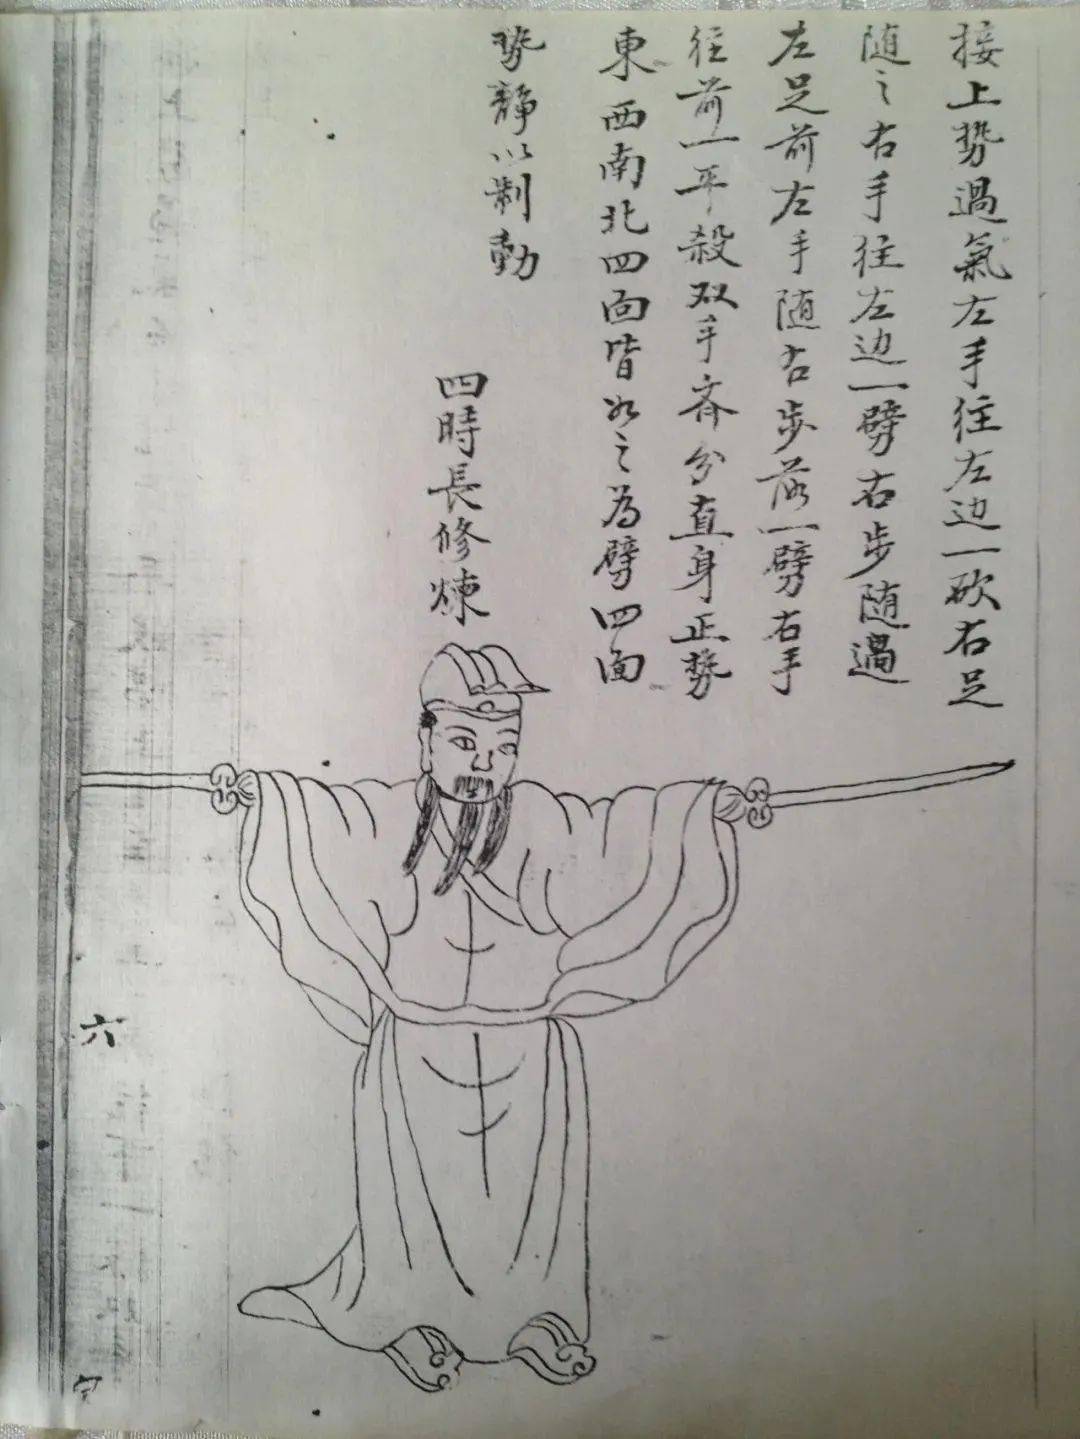 接上势過氣左手往左边一砍右足
随之右手往左边一劈右步随過
左足前左手随右步落一劈右手
往前一平殺双手齐分直身正势
東西南北四面皆如之為劈四面
势静以制動
四時長修煉
六